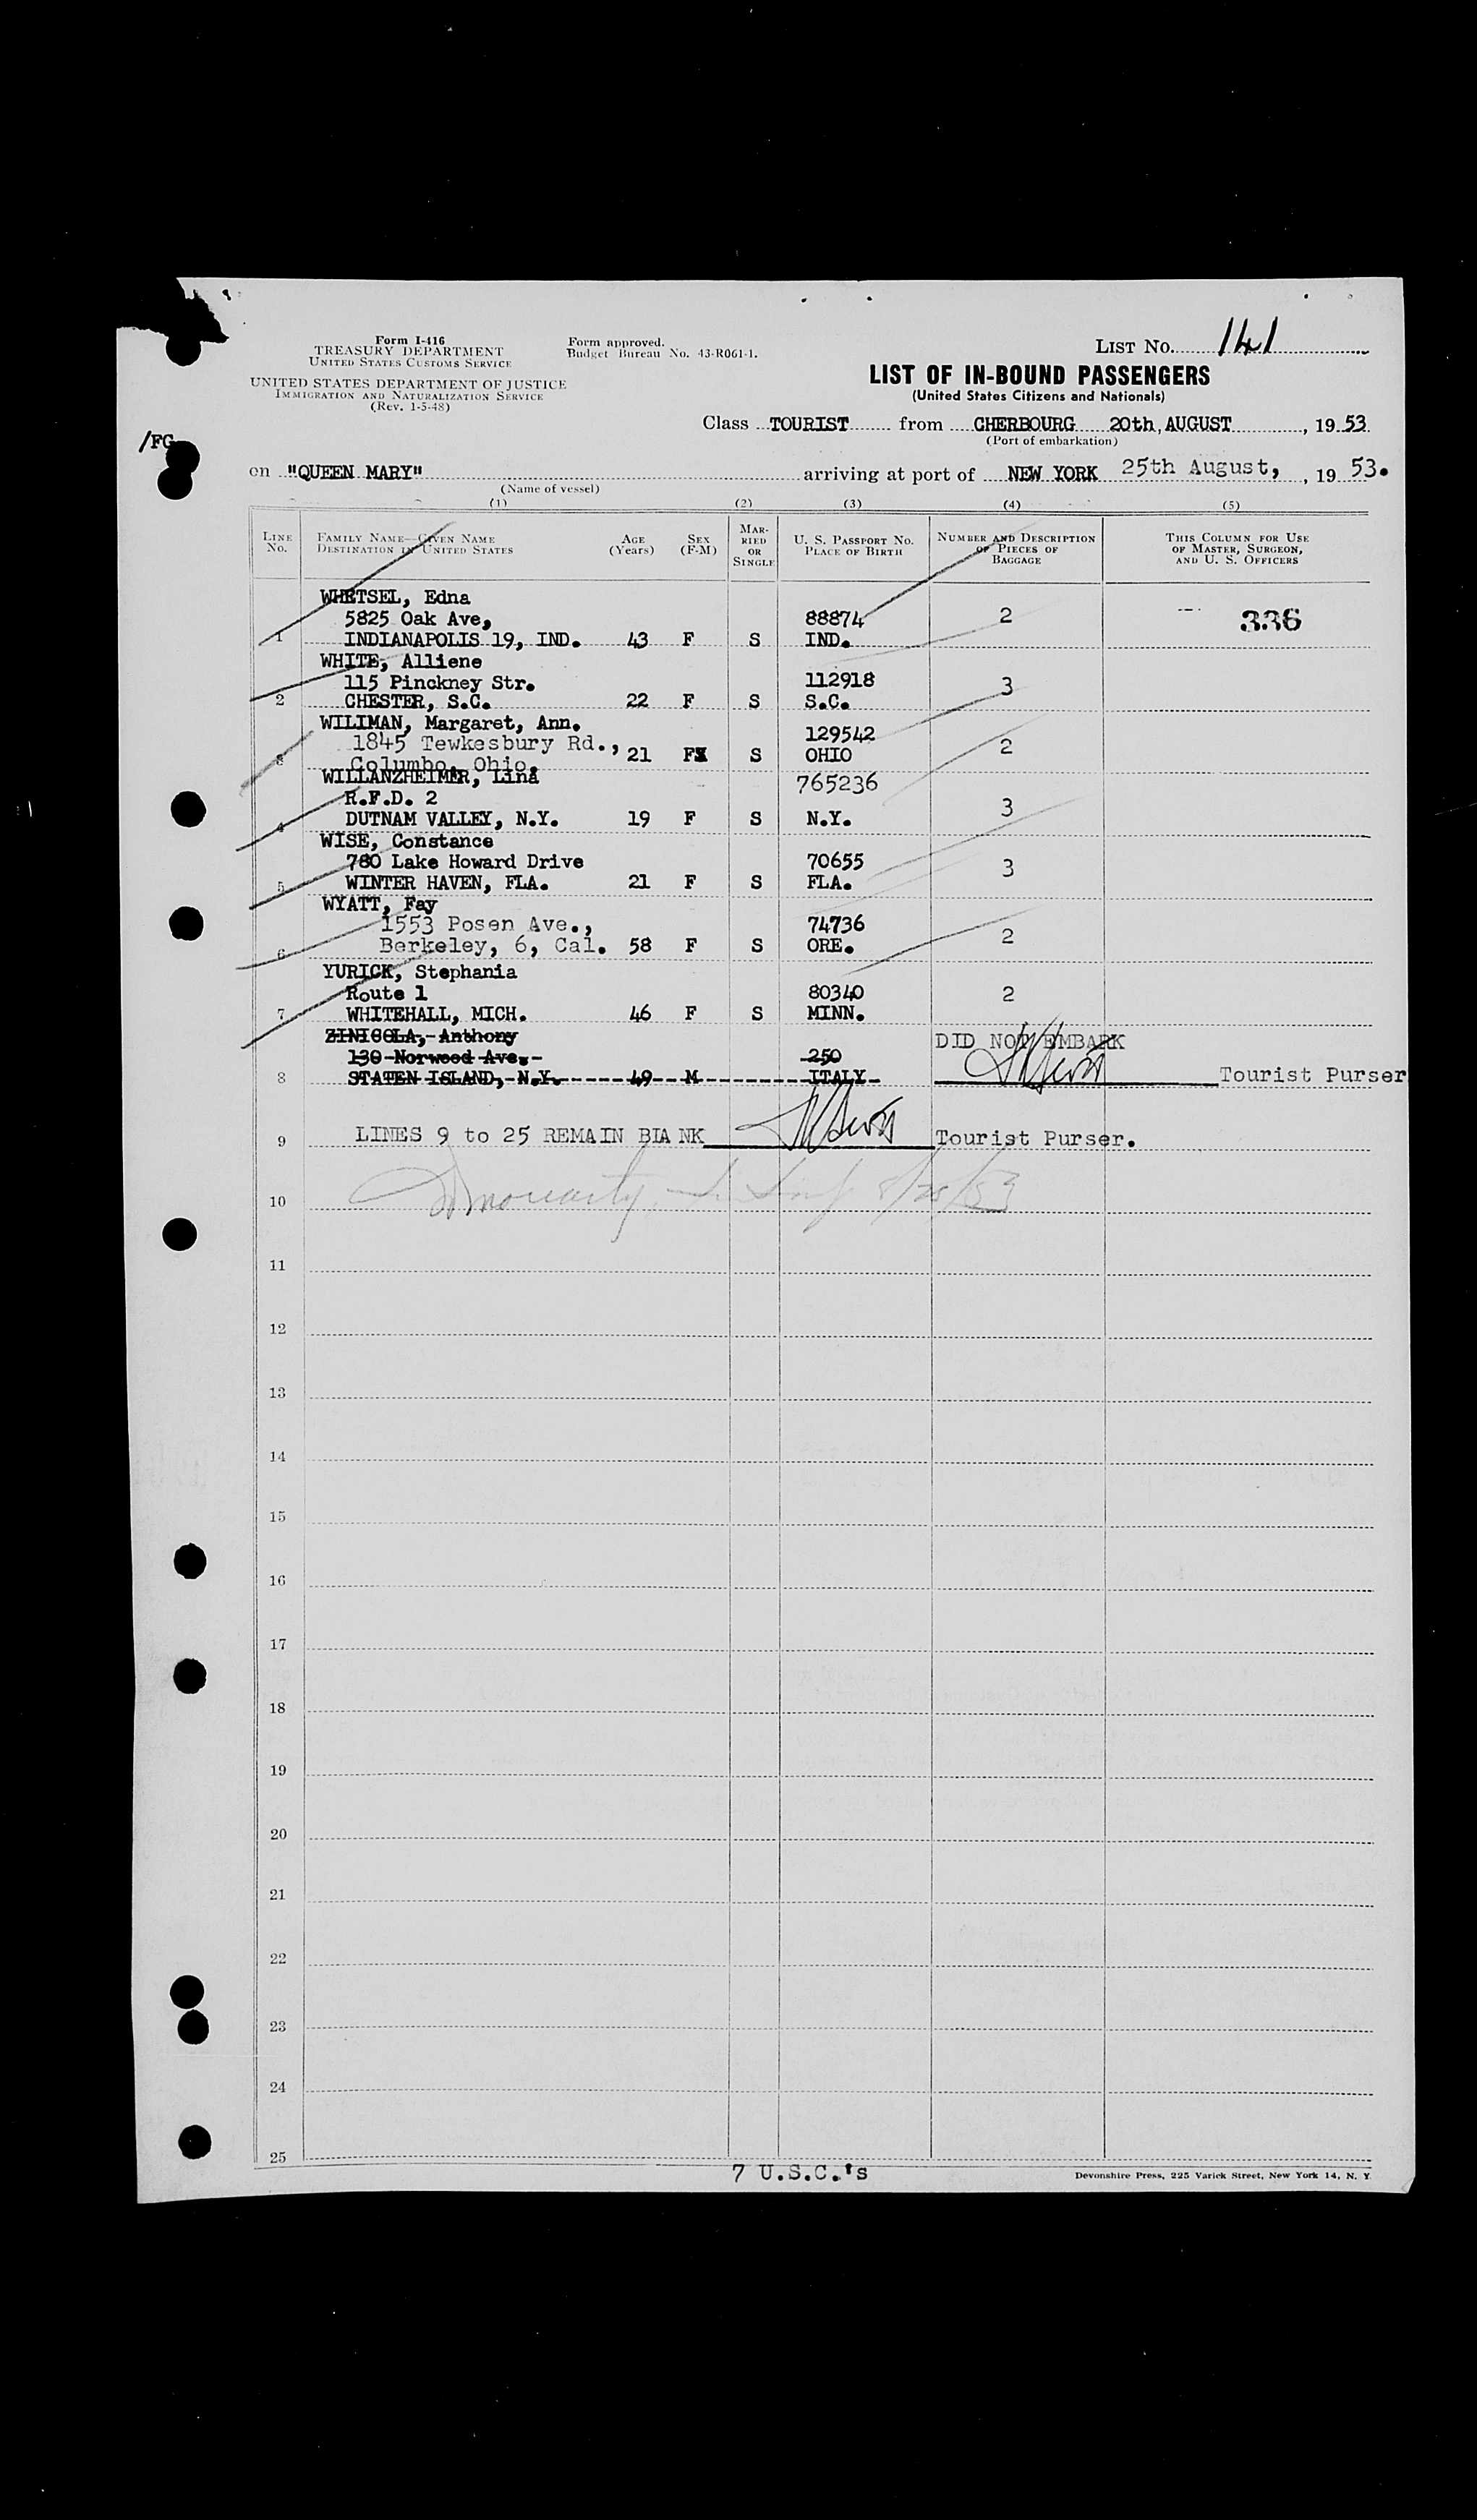 Form I-416
TREASURY DEPARTMENT
UNITED STATES CUSTOMS SERVICE
UNITED STATES DEPARTMENT OF JUSTICE
IMMIGRATION AND NATURALIZATION SERVICE
(Rev. 1-5-48)
Form approved.
Budget Bureau No. 43-R061-1.
LIST NO. 141
LIST OF IN-BOUND PASSENGERS
(United States Citizens and Nationals)
Class TOURIST from CHERBOURG 20th, AUGUST, 19 53
(Port of embarkation)
/FG
on "QUEEN MARY" arriving at port of NEW YORK 25th August, , 19 53.
(Name of vessel)
(1) (2) (3) (4) (5)
LINE NO. FAMILY NAME—GIVEN NAME DESTINATION IN UNITED STATES AGE (Years) SEX (F-M) MARRIED OR SINGLE U. S. PASSPORT NO. PLACE OF BIRTH NUMBER AND DESCRIPTION OF PIECES OF BAGGAGE THIS COLUMN FOR USE OF MASTER, SURGEON, AND U. S. OFFICERS
WHETSEL, Edna
5825 Oak Ave, 88874 2 336
1 INDIANAPOLIS 19, IND. 43 F S IND.
WHITE, Alliene
115 Pinckney Str. 112918 3
2 CHESTER, S.C. 22 F S S.C.
WILIMAN, Margaret, Ann. 129542
1845 Tewkesbury Rd., 21 FX S OHIO 2
3 Columbo, Ohio.
WILLANZHEIMER, Lina 765236
R.F.D. 2 3
4 DUTNAM VALLEY, N.Y. 19 F S N.Y.
WISE, Constance
780 Lake Howard Drive 70655 3
5 WINTER HAVEN, FLA. 21 F S FLA.
WYATT, Fay
1553 Posen Ave., 74736 2
6 Berkeley, 6, Cal. 58 F S ORE.
YURICK, Stephania
Route 1 80340 2
7 WHITEHALL, MICH. 46 F S MINN.
ZINICOLA, Anthony DID NOT EMBARK
130 Norwood Ave. 250
8 STATEN ISLAND, N.Y. 49 M ITALY Tourist Purser
9 LINES 9 to 25 REMAIN BLANK Tourist Purser.
10 8/25/53
11
12
13
14
15
16
17
18
19
20
21
22
23
24
25
7 U.S.C.'s
Devonshire Press, 225 Varick Street, New York 14, N. Y.